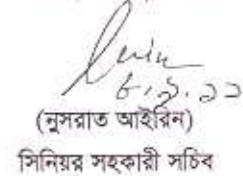 ৮.৯.১১
(নুসরাত আইরিন)
সিনিয়র সহকারী সচিব